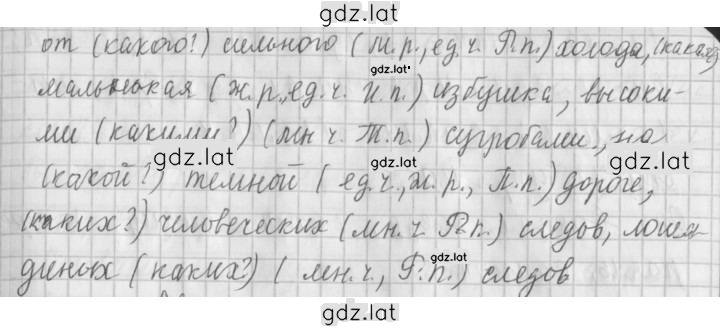 gdz.lat
от (какого?) сильного (м.р., ед.ч. Р.п.) холода, (какая?)
gdz.lat
маленькая (ж.р., ед.ч. И.п.) избушка, высоки-
ми (какими?) (мн ч. Т.п.) сугробами., на
gdz.lat
gdz.lat
(какой?) темной (ед.ч., ж.р., П.п.) дороге,
gdz.lat
(каких?) человеческих (мн.ч. Р.п.) следов, лоша
gdz.lat
диных (каких?) (мн.ч., Р.п.) следов
gdz.lat